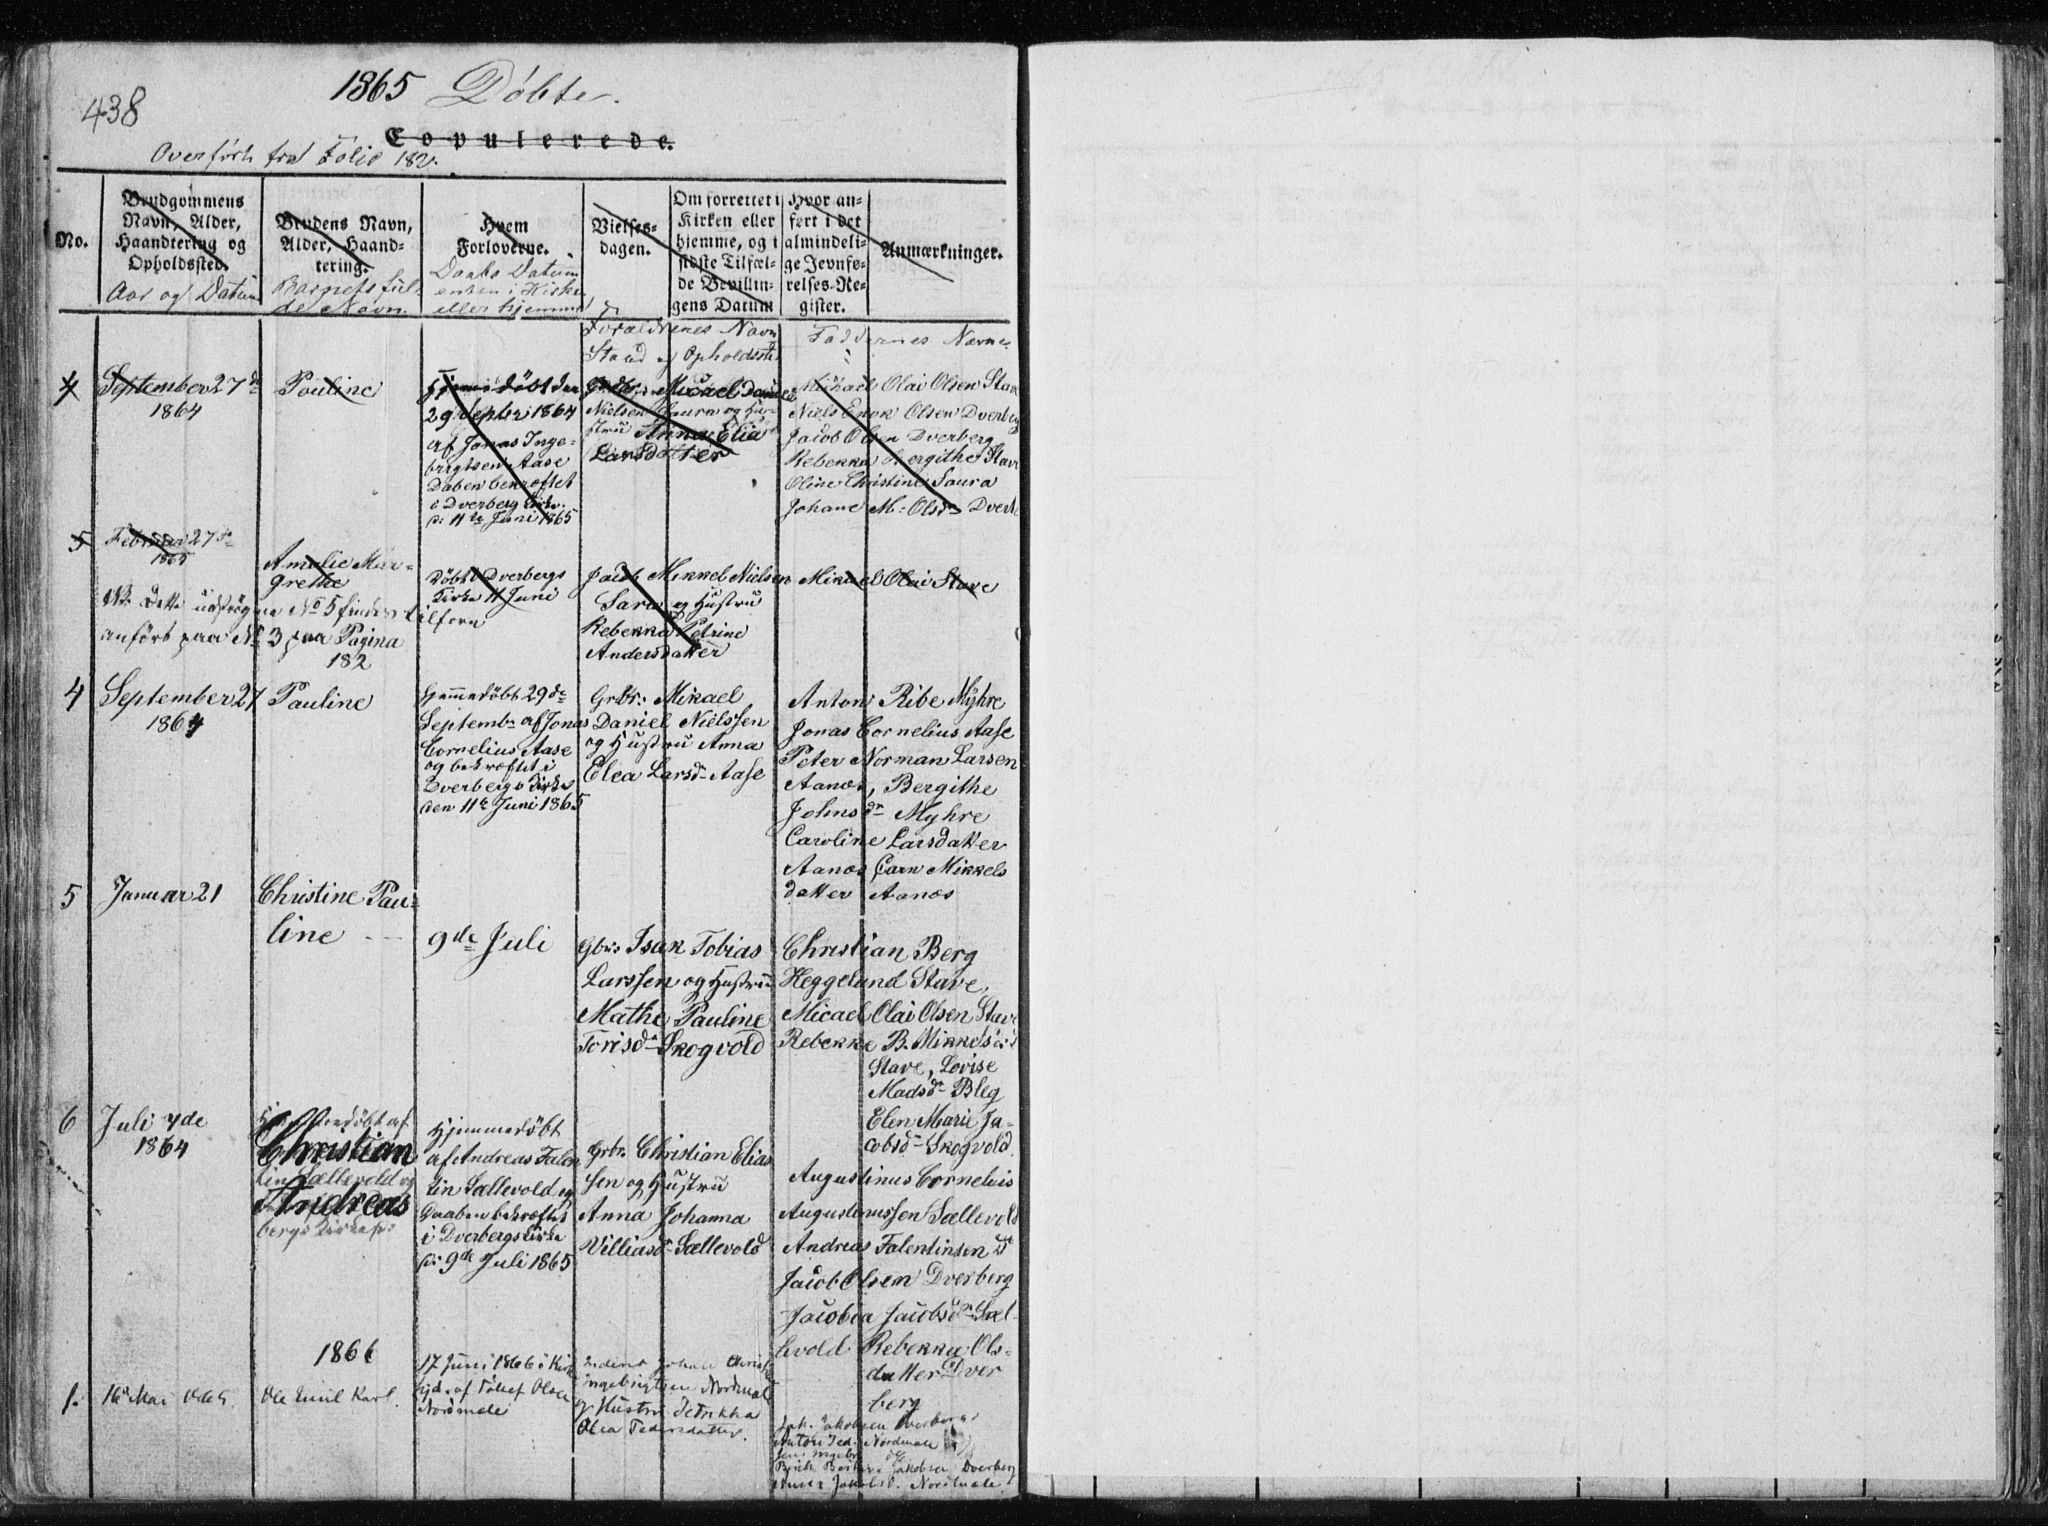 438
1865 Döbte
Copulerede.
Overfört fra Folio 182.
No.
Brudgommens
Navn, Alder,
Haandtering og
Opholdssted.
Aar og Datum
Brudens Navn,
Alder, Haand-
tering.
Barnets ful-
de Navn.
Hvem
Forloverne.
Daabs Datum
enten i Kirke
eller hjemme
Vielses-
dagen.
Om forrettet i
Kirken eller
hjemme, og i
sidste Tilfæl-
de Bevillin-
gens Datum
Hvor an-
ført i det
almindeli-
ge Jevnfø-
relses-Re-
gister.
Anmærkninger.
Forældrenes Navn
Stand og Opholdsste
Faddernes Navne
4
September 27de
1864
Pauline
Hjemmedöbt den
29 Septbr: 1864
af Jonas Inge-
brigtsen Aase
Daben bekræftet
i Dverberg Kirke
d: 11te Juni 1865
Grbr: Micael Daniel
Nielsen Saura og Hu-
stru Anna Elia
Larsdatter
Michael Olai Olsen Stave
Niels Enok Olsen Dverberg
Jacob Olsen Dverberg
Rebekka Bergithe Stave
Oline Christine Saura
Johane M: Olsdr Dverbe
5
Februar 27de
1865
Amalie Mar-
grethe
Döbt i Dverbergs
Kirke 11 Juni
Jacob Mikkel Nielsen
Sara og Hustru
Rebekka Petrine
Andersdatter
Mikael Olai Stave
NB. Dette udströgne No 5 findes tilforn
anfört paa No 3 paa Pagina
182
4
September 27
1864
Pauline
Hjemmedöbt 29de
Septembr af Jonas
Cornelius Aase
og bekræftet i
Dverbergs Kirke
den 11te Juni 1865
Grbr: Mikael
Daniel Nielssen
og Hustru Anna
Elea Larsdr Aase
Anton Ribe Myhre
Jonas Cornelius Aase
Peter Norman Larsen
Aanæs, Bergithe
Johnsdr Myhre
Caroline Larsdatter
Aanæs Carn Mikkels
datter Aanæs
5
Januar 21
Christine Pau-
line
9de Juli
Gbr: Isak Tobias
Larssen og Hustru
Mathe Pauline
Torisdr Skogvold
Christian Berg
Heggelund Stave,
Micael Olai Olsen Stave
Rebekke B. Mikkels
Stave, Lovise
Madsdr Bleg
Elen Marie Ja-
cobsdr Skogvold
6
Juli 7de
1864
Christian
Andreas
Hjemmedöbt
af Andreas Falen
tin Sællevold og
Daaben bekræftet
i Dverbergs Kirke
d: 9de Juli 1865
Grbr: Christian Elias
sen og Hustru
Anna Johanna
Villiasdr Sællevold
Augustinus Cornelius
Augustinussen Sællevold
Andreas Falentinsen
Jacob Olsen Dverberg
Jacobia Jacobsdr Sæl-
levold Rebekka Ols-
datter Dver
berg
1866
1.
16 Mai 1865
Ole Emil Karl.
17 Juni 1866 i Kirk
af Tollef Olsen
Nordmele
Inderst Johan Christ
Ingebrigtsen Nordmele
og Hustru Petrikka
Olea Pedersdatter.
Jak. Jakobsen Dverberg
Anton Ped. Nordmele
Jakobsen Dverberg
Jakobsd. Nordmele